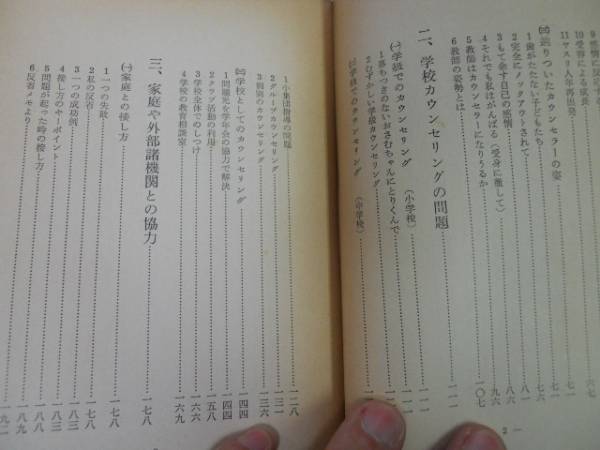 10 感情に反応する
10 受容による成長
11 ヤスリ人年再出発
㈢ 辿りついたカウンセラーの姿
1 歯がたたない子どもたち
2 完全にノックアウトされて
3 もて余す自己の感情
4 それでも私はがんばる(受身に徹して)
5 教師はカウンセラーになりうるか 一〇七
6 教師の姿勢とは 一一一
二、学校カウンセリングの問題 一一一
㈠ 学級でのカウンセリング(小学校)
1 落ちつきのないおさむちゃんにとりくんで
2 むずかしい学級カウンセリング
㈡ 学校でのカウンセリング(中学校)
2 —
1 小集団指導の問題 一二八
2 グループカウンセリング 一三一
3 個別のカウンセリング 一三六
㈢ 学校としてのカウンセリング 一四四
1 問題児を学年会の協力で解決 一四四
2 クラブ活動の利用 一五八
3 学校全体でのしつけ 一六七
4 学校の教育相談室 一六九
三、家庭や外部諸機関との協力 一七八
㈠ 家庭との接し方 一七八
1 一つの失敗 一七八
2 私の反省
3 一つの成功例 一八三
4 接し方のキーポイント 一八三
5 問題が起った時の接し方 一八八
6 反省メモより